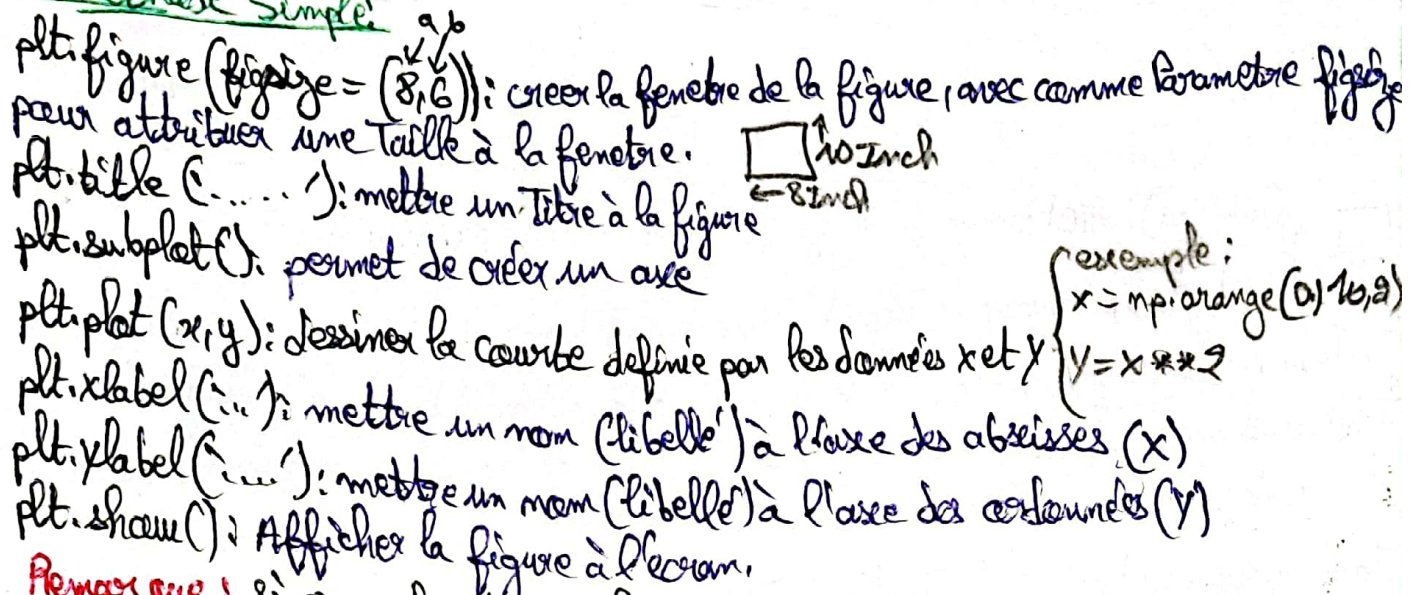 Simple:
a b
plt.figure(figsize=(8,6)): creer la fenetre de la figure, avec comme Parametre figsize
pour attribuer une Taille à la fenetre.
10 Inch
←8Inch
plt.title('.....'): mettre un Titre à la figure
plt.subplot(): permet de créer un axe
plt.plot(x,y): dessiner la courbe definie par les données x et y
exemple:
x = np.arange(0,10,2)
y = x**2
plt.xlabel('...'): mettre un nom (libellé) à l'axe des abscisses (X)
plt.ylabel('....'): mettre un nom (libellé) à l'axe des ordonnées (Y)
plt.show(): Afficher la figure à l'ecran.
Remarque: